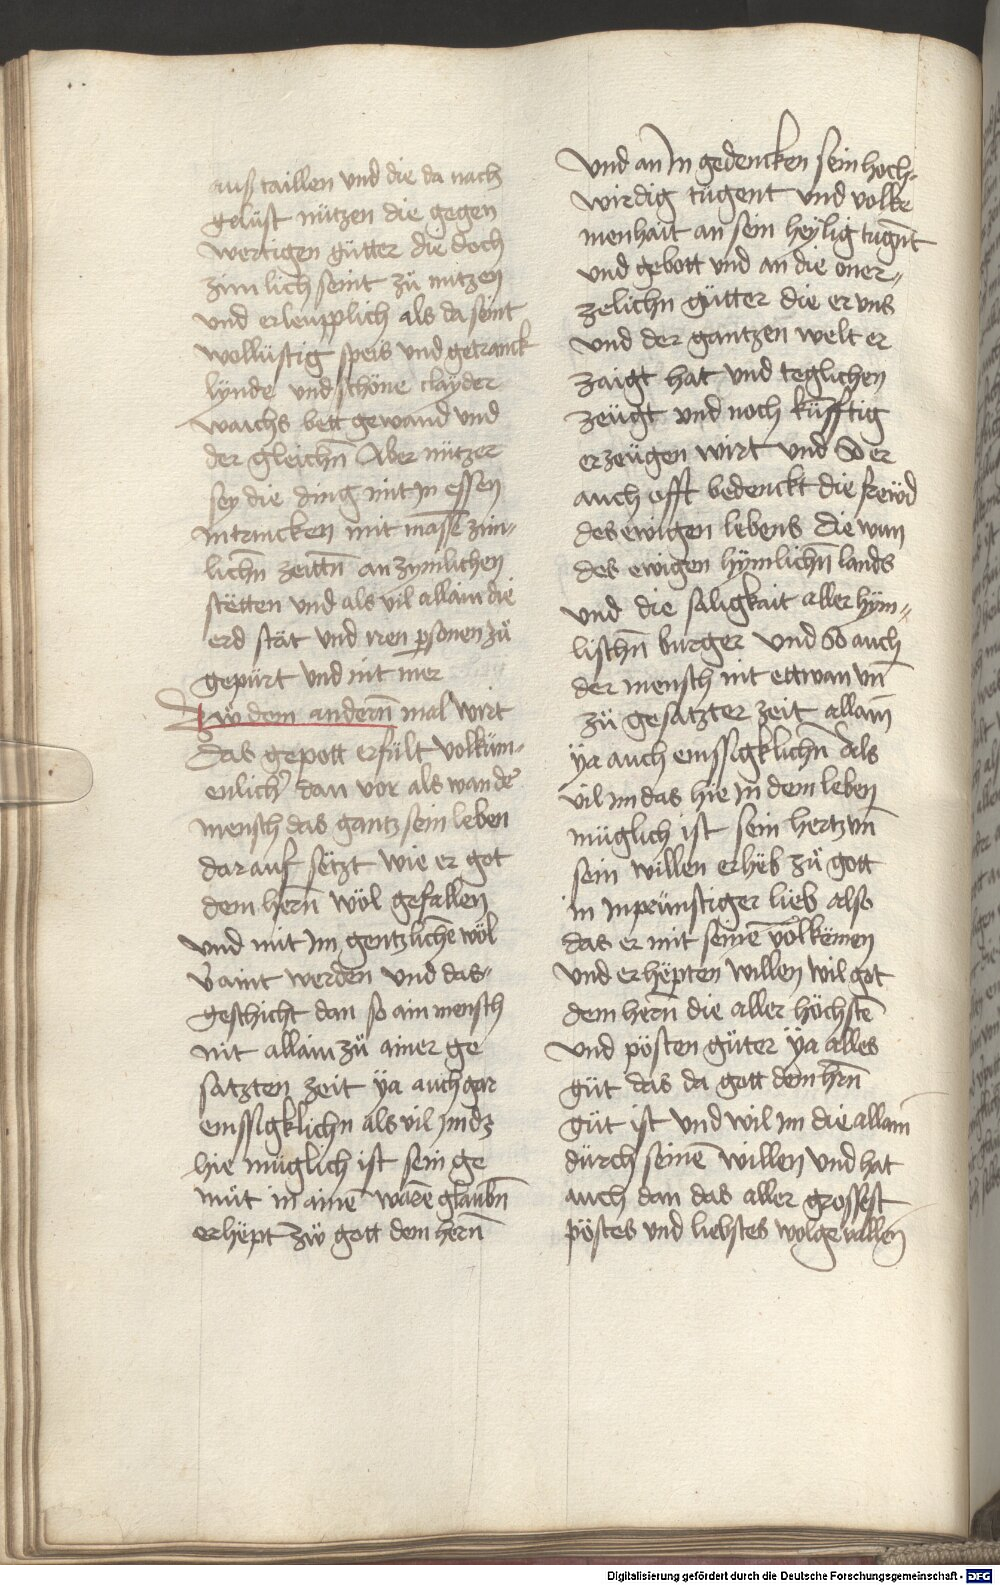 auß taillen vnd die da nach
gelüst nützen die gegen
wertigen gütter die doch
zimlich seint zů nützen
vnd erleupplich als da seint
wollüstig speis vnd getranck
lynde vnd schöne clayder
waichs bett gewand vnd
der gleichn̄ Aber nützer
sey die ding nit jn essen
jntrincken mit masse zim-
lichn̄ zeittn̄ an zymlichen
stetten vnd als vil allain die
erd stät vnd iren psonen zů
gepürt vnd nit mer
Zw dem andern̄ mal wirt
das gepott erfült volkum-
enlich' dan vor als wan d'
mensch das gantz sein leben
darauf setzt wie er got
dem hern̄ wöl gefallen
vnd mit jm gentzlichē wöl
v'aint werden vnd das-
geschicht dan so ain mensch
nit allain zů ainer ge
satzten zeit ÿa auch gar
emssigklichn als vil jm dz
hie müglich ist sein ge
müt in ainē warē glaubn̄
erhept zw gott dem hern̄
vnd an jn gedencken sein hoch-
wirdig tugent vnd volke
menhait an sein heylig tugn̄t
vnd gebott vnd an die oner-
zelichn gütter die er vns
vnd der gantzen welt er
zaigt hat vnd teglichen
zeügt vnd noch künfftig
erzeügen wirt vnd So er
auch offt bedenckt die freüd
des ewigen lebens die wun
des ewigen hymlichn̄ lands
vnd die saligkait aller hym-
lischn̄ burger vnd So auch
der mensch nit ettwan vn̄
zů gesatzter zeit allain
ÿa auch emssigklichn̄ Als
vil jm das hie jn dem leben
müglich ist sein hertz vn̄
sein willen erheb zů gott
in jnprünstiger lieb also
das er mit seinē volkemen
vnd erhepten willen wil got
dem hern̄ die aller höchstē
vnd pösten güter ÿa alles
güt das da gott dem hrn̄
güt ist vnd wil jm die allain
dürch seinē willen vnd hat
auch dan das aller grossest
pöstes vnd liebstes wolgevallen
Digitalisierung gefördert durch die Deutsche Forschungsgemeinschaft - DFG